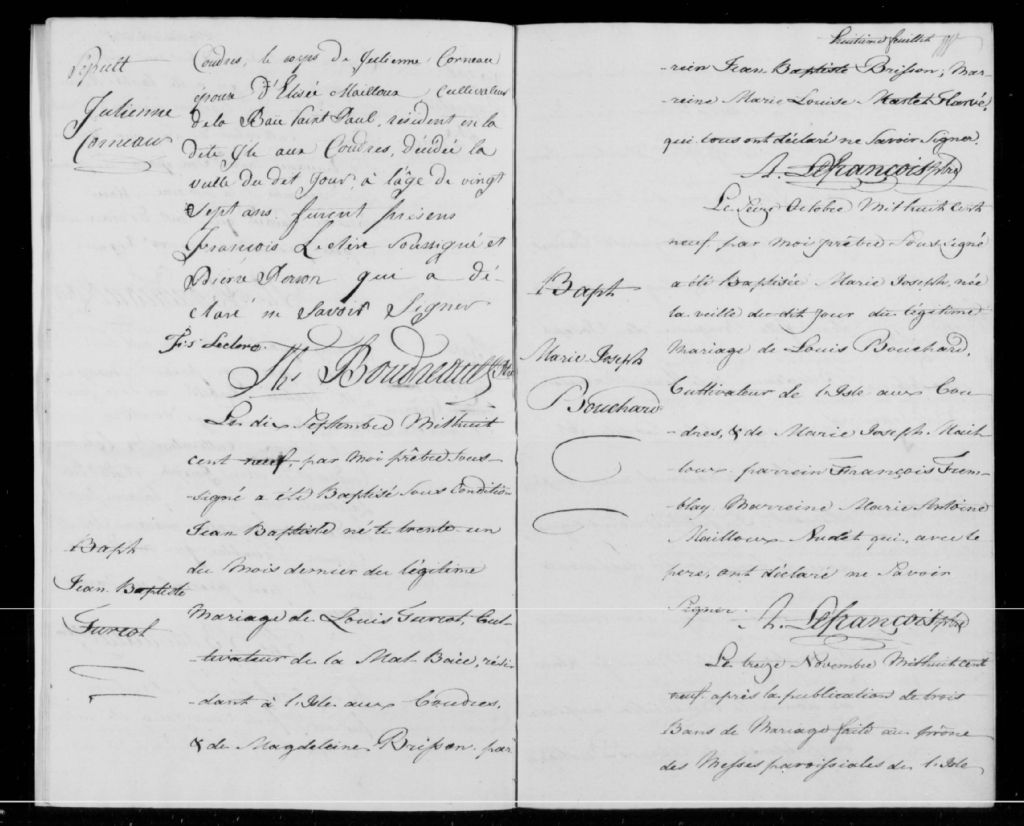 Sepult
Julienne
Corneau
Coudres, le corps de Julienne Corneau
épouse d'Elisée Mailloux Cultivateur
de la Baie Saint Paul, résident en la
dite Ile aux Coudres, décédée la
veille du dit Jour, à l'âge de vingt
Sept ans. furent présens
François Leclerc Soussigné et
Pierre qui a dé-
claré ne Savoir Signer
Frs Leclerc.
Ths Boudreault Ptre
Baph
Jean Baptiste
Turcot
Le dix Septembre Mil huit
cent neuf, par Moi prêtre Sous-
-signé a été Baptisé Sous Condition
Jean Baptiste né le trente un
du Mois dernier du légitime
Mariage de Louis Turcot, Cul-
-tivateur de la Mal Baiee, rési-
-dant à l'Isle aux Coudres,
& de Magdeleine Brisson. par
huitieme feuillet
-rein Jean Baptiste Brisson, Mar-
-reine Marie Louise Martel Harvé,
qui tous ont déclaré ne Savoir Signer.
A. Lefrançois ptre
Baph
Marie Joseph
Bouchard
Le Seize Octobre Mil huit cent
neuf par moi prêtre Sous Signé
a été Baptisée Marie Joseph, née
la veille du dit Jour du légitime
Mariage de Louis Bouchard,
Cultivateur de l'Isle aux Cou-
-dres, & de Marie Joseph Mail-
loux. parrein François Trem-
blay Marreine Marie Antoine
Mailloux Audet qui, avec le
pere, ont déclaré ne Savoir
Signer.
A. Lefrançois ptre
Le treize Novembre Mil huit cent
neuf après la publication de trois
Bans de Mariage faite au prône
des Messes paroissiales de l'Isle